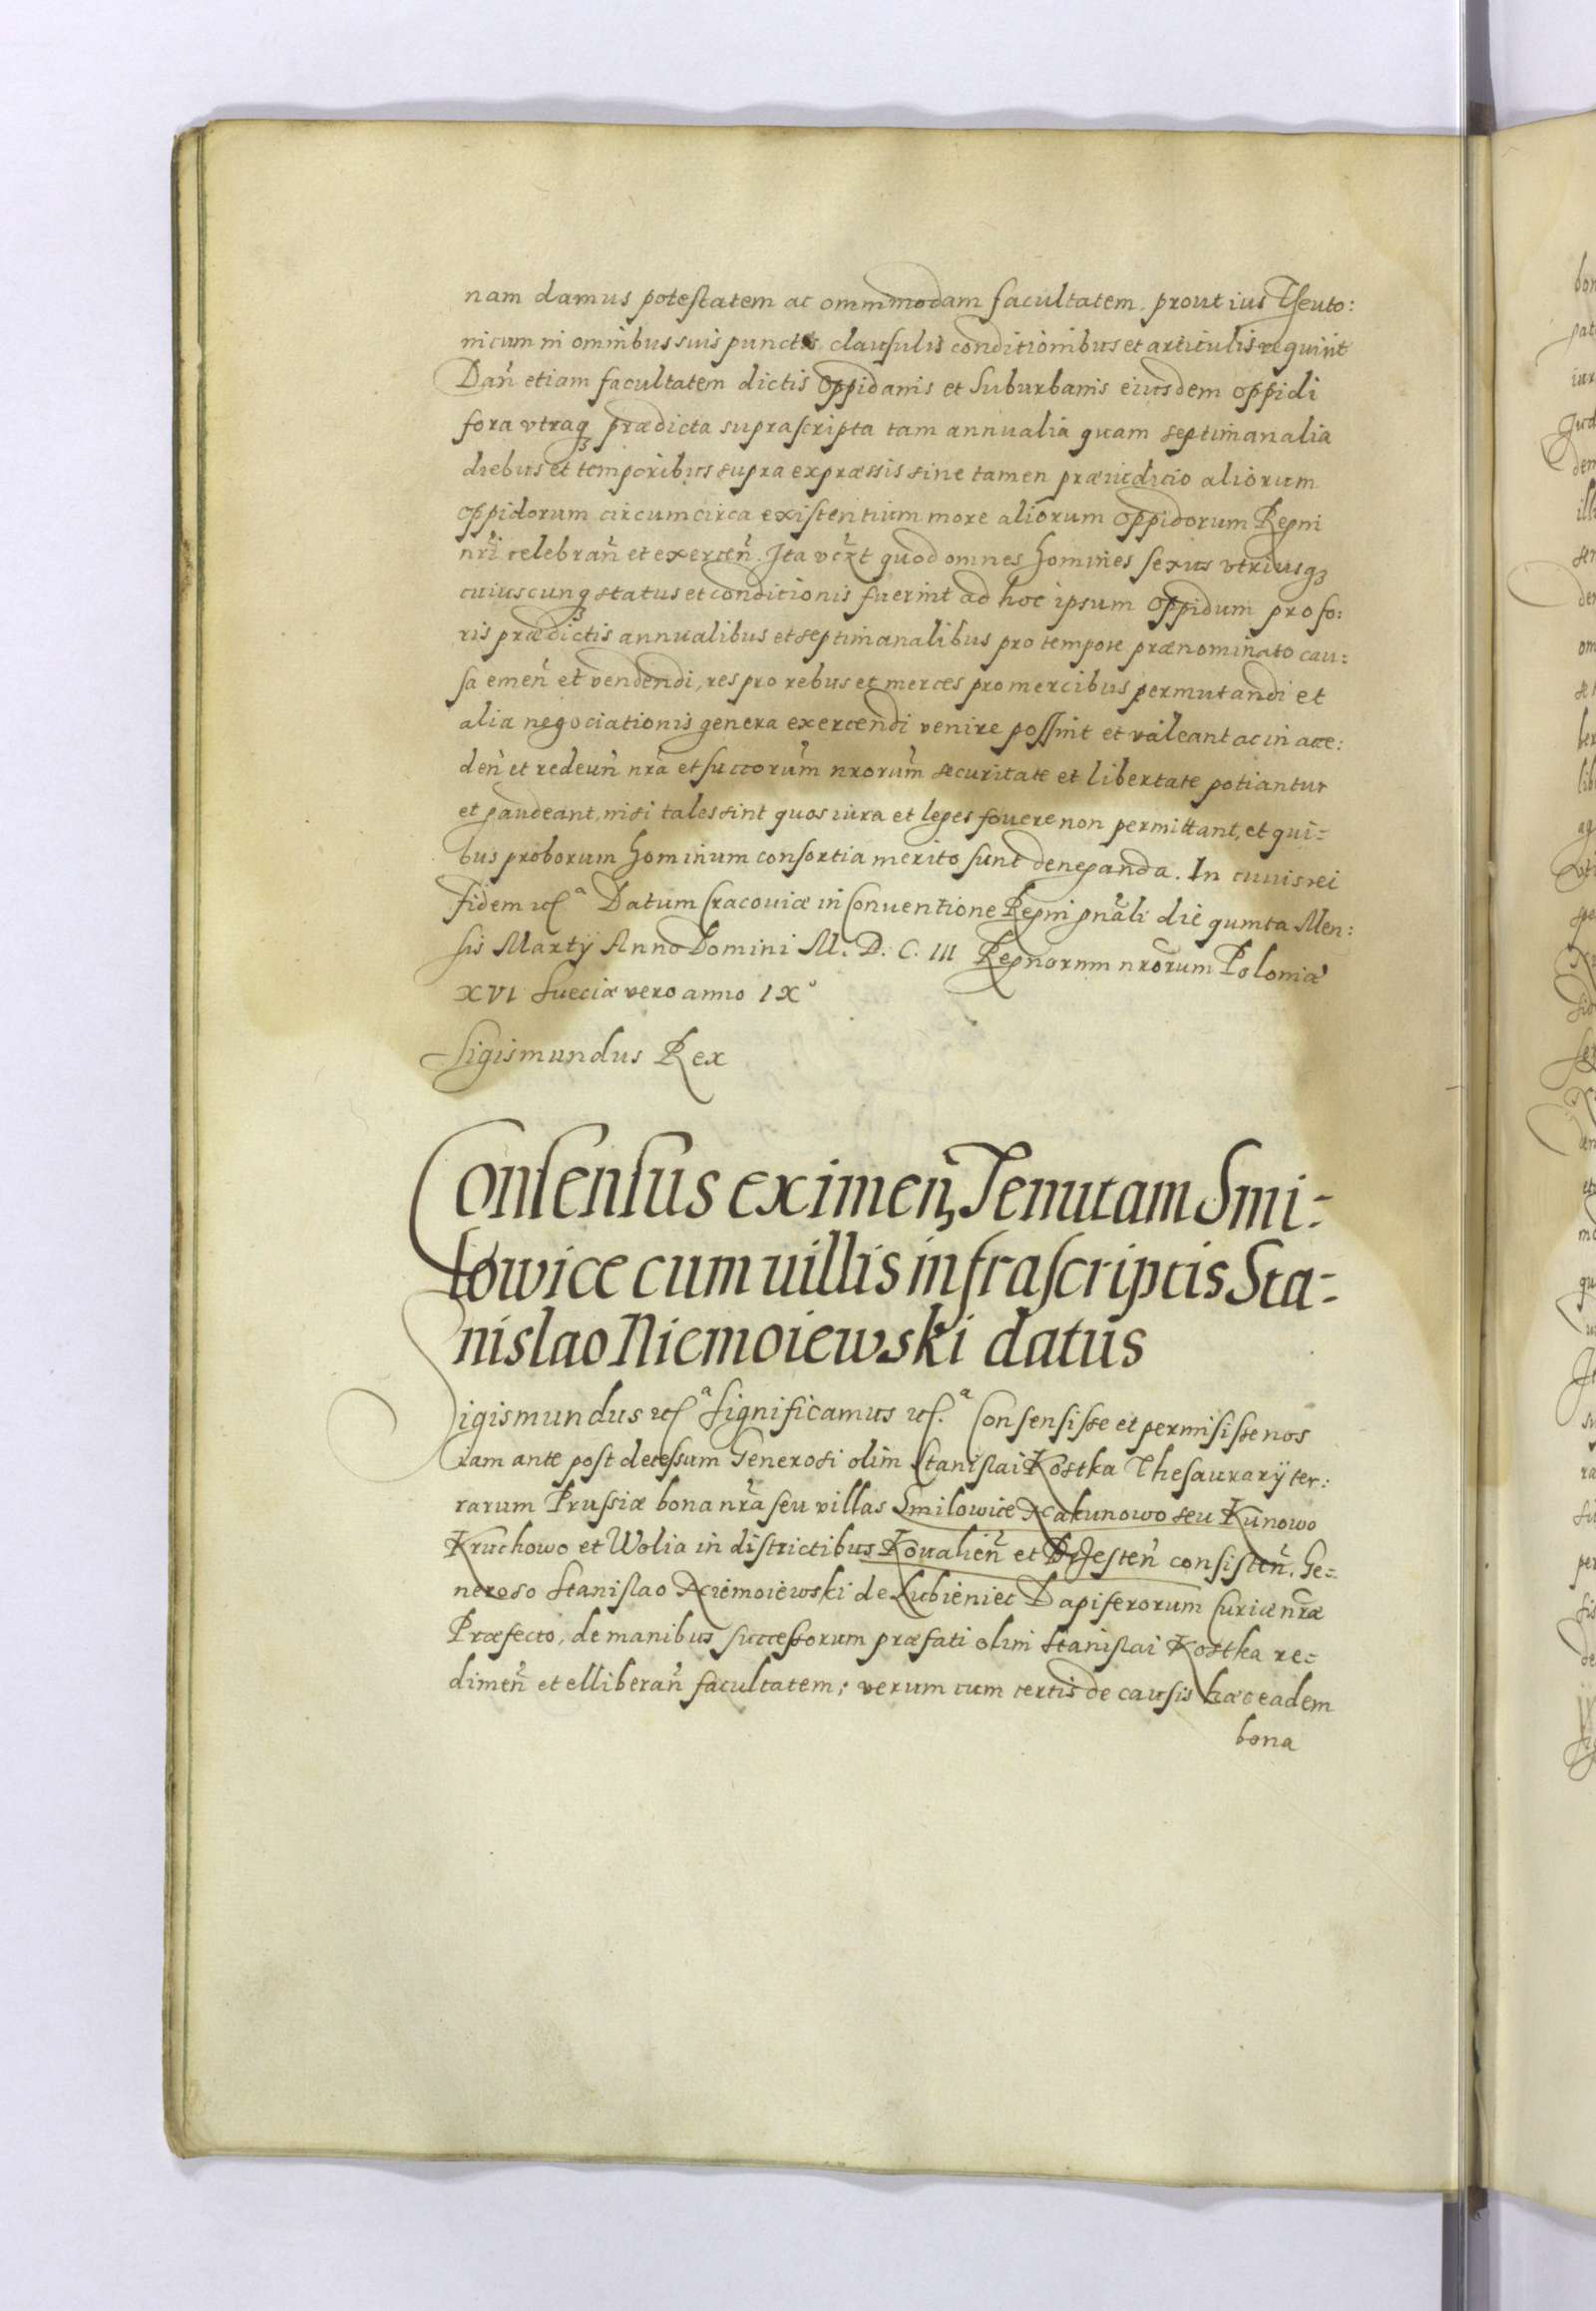 nam damus potestatem ac ommmodam facultatem. prout ius Theuto:
nicum in omnibus suis punctis, clausulis conditionibus et articulis requirit
Dan̄ etiam facultatem dictis Oppidanis et Suburbanis eiusdem oppidi
fora vtraqꝫ prædicta suprascripta tam annualia quam septimanalia
diebus et temporibus supra expræssis sine tamen præiudicio aliorum
oppidorum circumcirca existentium more aliorum Oppidorum Regni
nr̄i celebran̄ et exercen̄. Ita quod omnes homines sexus vtriusqꝫ
cuiuscunqꝫ status et conditionis fuerint ad hoc ipsum Oppidum pro fo:
ris prædictis annualibus et septimanalibus pro tempore prænominato cau:
sa emen̄ et vendendi, res pro rebus et merces pro mercibus permutandi et
alia negociationis genera exercendi venire possint et valeant ac in acce:
den̄ et redeun̄ nr̄a et succorum̄ nrorum̄ securitate et libertate potiantur
et gaudeant, nisi tales sint quos iura et leges fouere non permittant, et qui=
bus proborum hominum consortia merito sunt deneganda. In cuius rei
fidem etcᵃ Datum Cracouiæ in Conuentione Regni gn̄ali die quinta Men:
sis Martÿ Anno Domini M. D. C. III Regnorum nr̄orum Poloniæ
XVI Sueciæ vero anno IXº
Sigismundus Rex
Consensus eximen̄, Tenutam Smi=
lowice cum uillis infrascriptis Sta=
nislao Niemoiewski datus
Sigismundus etcᵃ Significamus etc.ᵃ Consensisse et permisisse nos
iam ante post decessum Generosi olim Stanislai Kostka Thesaurarÿ ter:
rarum Prussiæ bona nr̄a seu villas Smilowice Nakunowo seu Kunowo
Kruchowo et Wolia in districtibus Koualien̄ et Brzesten̄ consisten̄. Ge=
neroso Stanislao Niemoiewski de Lubieniec Dapiferorum Curiæ nr̄æ
Præfecto, de manibus successorum præfati olim Stanislai Kostka re=
dimen̄ et elliberan̄ facultatem; verum cum certis de causis hæc eadem
bona